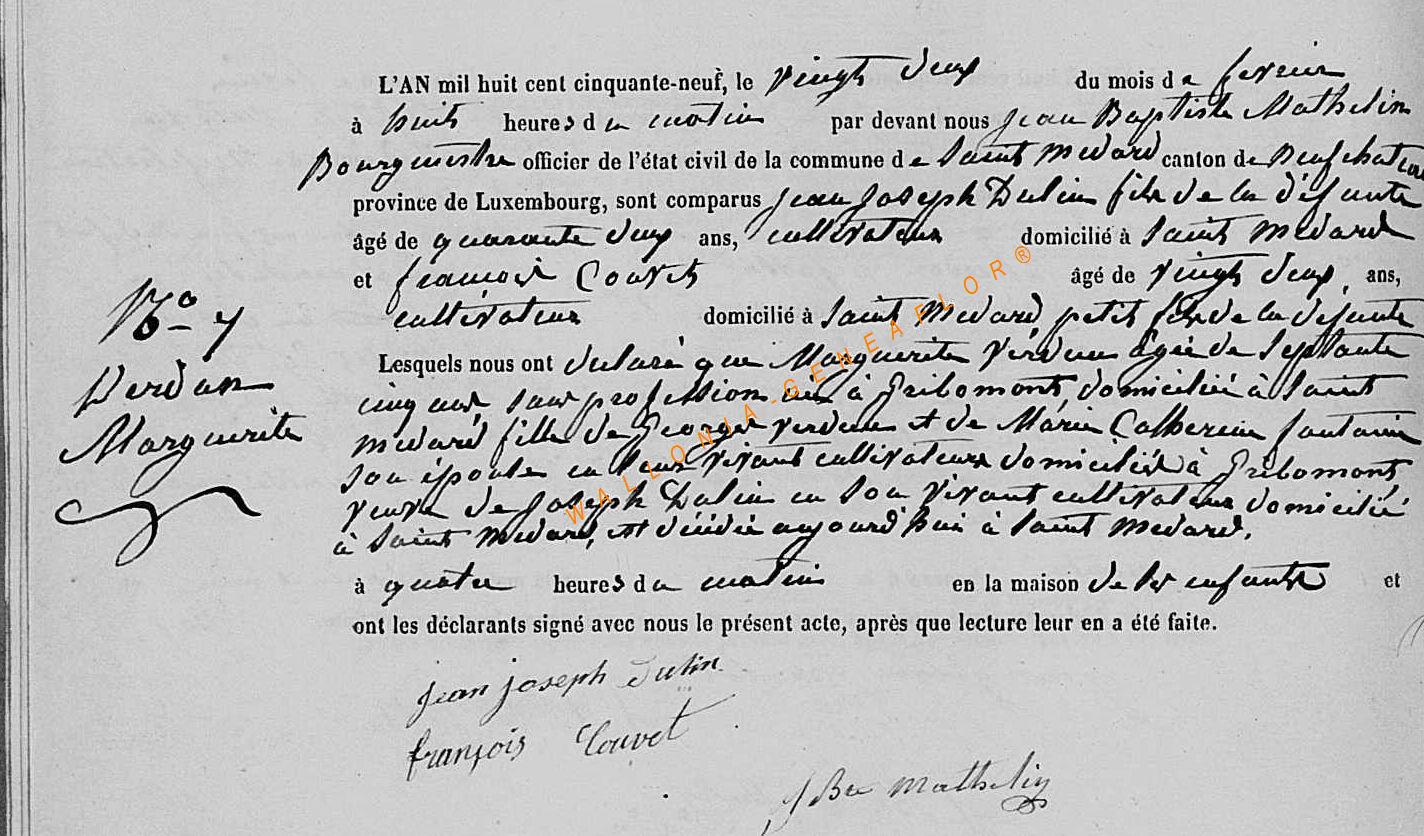 L'AN mil huit cent cinquante-neuf, le vingt deux du mois de fevrier
à huit heures du matin par devant nous Jean Baptiste Mathelin
Bourgmestre officier de l'état civil de la commune de Saint Medard canton de Neufchateau
province de Luxembourg, sont comparus Jean Joseph Dulin fils de la défunte
âgé de quarante deux ans, cultivateur domicilié à Saint Medard
et françois Couvet âgé de vingt deux, ans,
cultivateur domicilié à Saint Medard, petit fils de la defunte
Lesquels nous ont declaré que Marguerite Verdun agée de septante
cinq ans sans profession née à Gribomont, domiciliée à Saint
medard fille de George verdun et de Marie Catherine fontaine
son épouse en leur vivant cultivateurs domiciliés à Gribomont
veuve de Joseph Dulin en son vivant cultivateur domicilié
à Saint Medard, est décédée aujourd'hui à Saint Medard.
à quatre heures du matin en la maison de ses enfants et
ont les déclarants signé avec nous le présent acte, après que lecture leur en a été faite.
Verdun
Marguerite
jean joseph Dulin
françois Couvet
J Bte Mathelin
WALLONIA-GENEAFLOR®